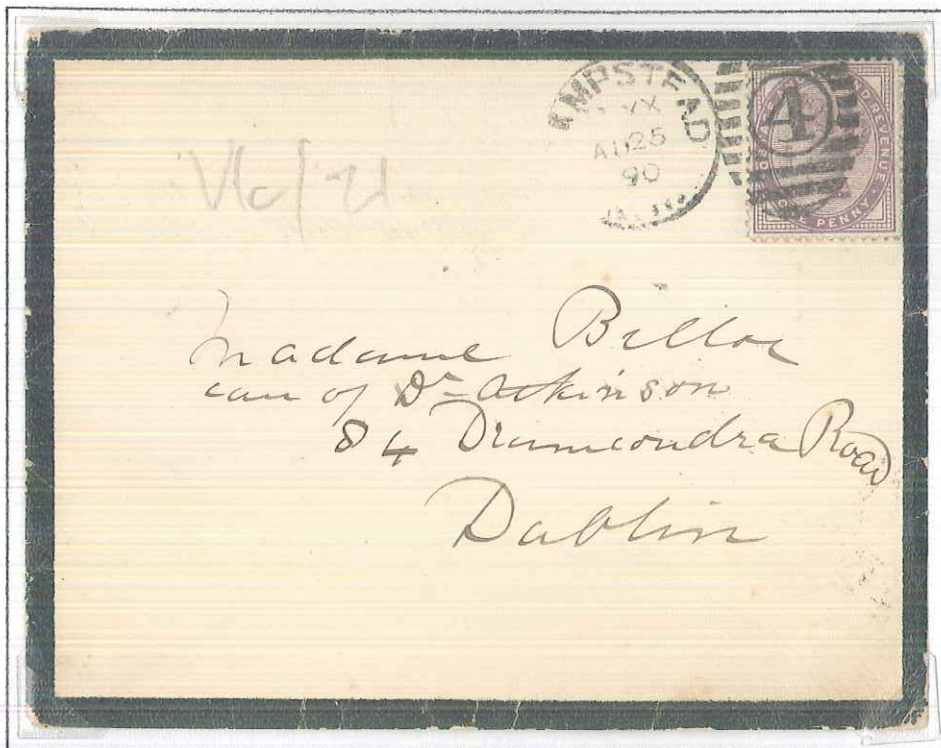 HMPSTEAD
YX
AU 25
90
4
POSTAGE AND INLAND REVENUE
ONE PENNY
Madame
care of Dr Atkinson
84 Drumcondra Road
Dublin